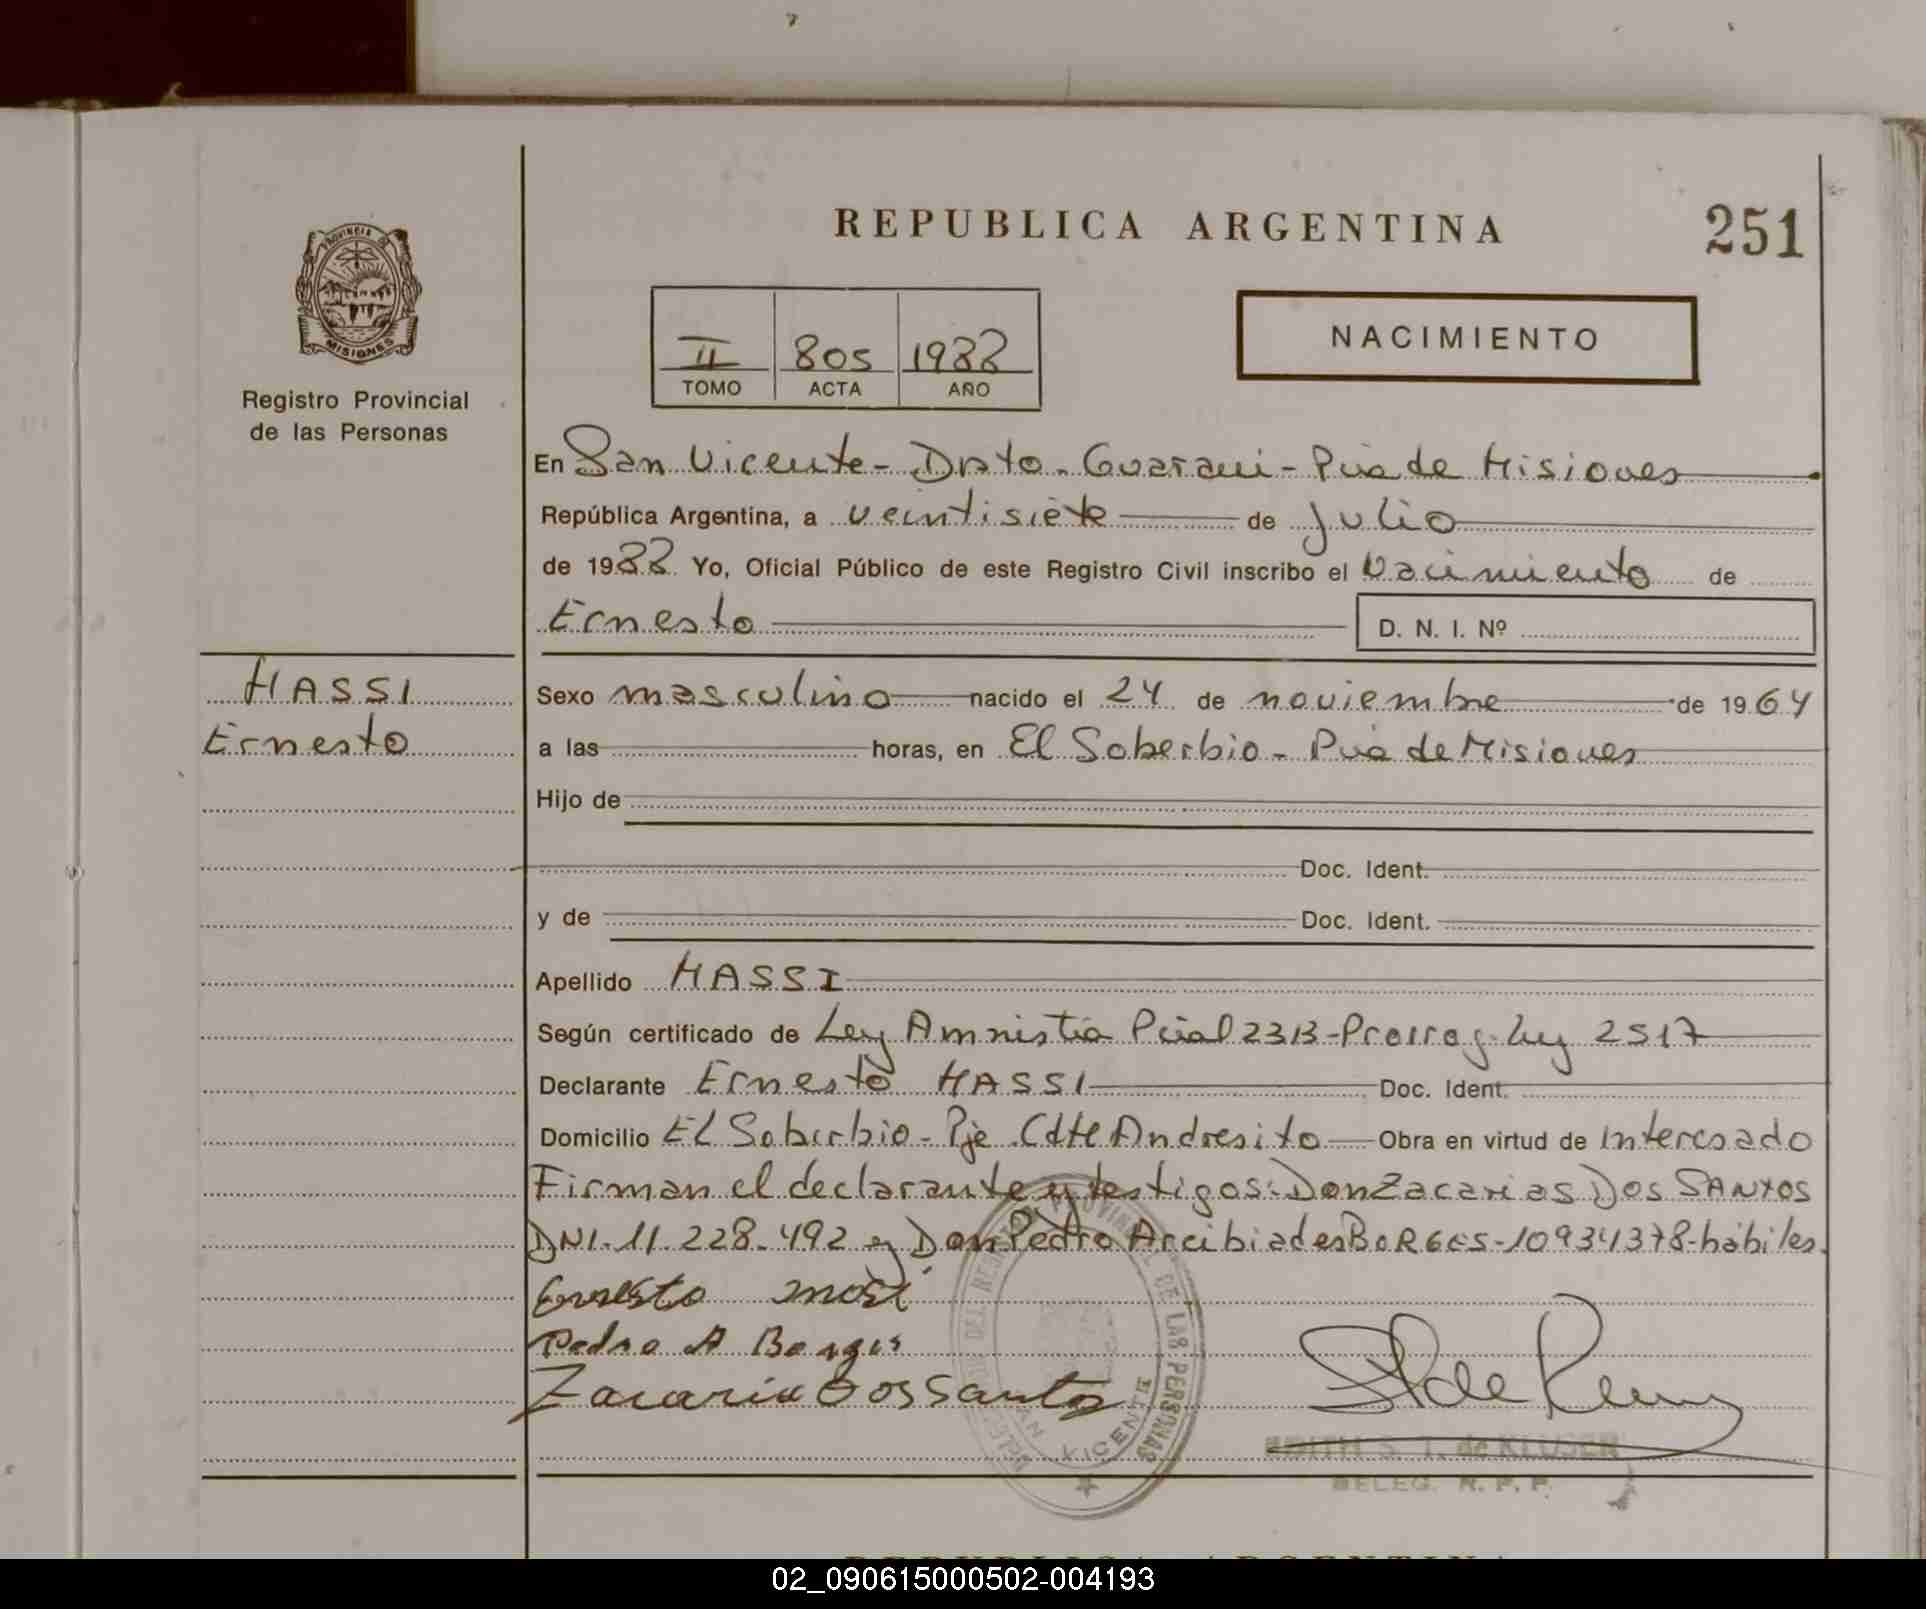 REPUBLICA ARGENTINA
251
PROVINCIA DE
MISIONES
Registro Provincial
de las Personas
II 805 1988
TOMO ACTA AÑO
NACIMIENTO
En San Vicente - Dpto. Guarani - Pcia de Misiones
República Argentina, a veintisiete de Julio
de 1988. Yo, Oficial Público de este Registro Civil inscribo el Nacimiento de
Ernesto D. N. I. Nº
MASSI
Ernesto
Sexo masculino nacido el 24 de noviembre de 1964
a las horas, en El Soberbio - Pcia de Misiones
Hijo de
Doc. Ident.
y de Doc. Ident.
Apellido MASSI
Según certificado de Ley Amnistia Pcial 2313 - Prorrog. Ley 2517
Declarante Ernesto MASSI Doc. Ident.
Domicilio El Soberbio - Pje Cdte Andresito Obra en virtud de Interesado
Firman el declarante y testigos: Don Zacarias Dos SANTOS
DNI. 11.228.492 y Don Pedro Arcibiades BORGES - 10934378 - hábiles.
Ernesto masi
Pedro A Borges
Zacaria Dos Santos
DEL REGISTRO PROVINCIAL DE LAS PERSONAS
SAN VICENTE
EDITH S. T. de KLUSER
DELEG. R. P. P.
REPUBLICA ARGENTINA
02_090615000502-004193